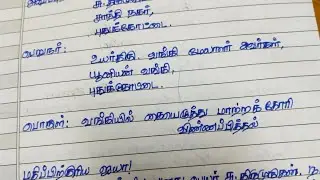 சாந்தி நகர்,
புதுக்கோட்டை.
பெறுநர்: உயர்திரு. வங்கி மேலாளர் அவர்கள்,
யூனியன் வங்கி,
புதுக்கோட்டை.
பொருள்: வங்கியில் கையெழுத்து மாற்றக் கோரி
விண்ணப்பித்தல்
மதிப்பிற்குரிய ஐயா!